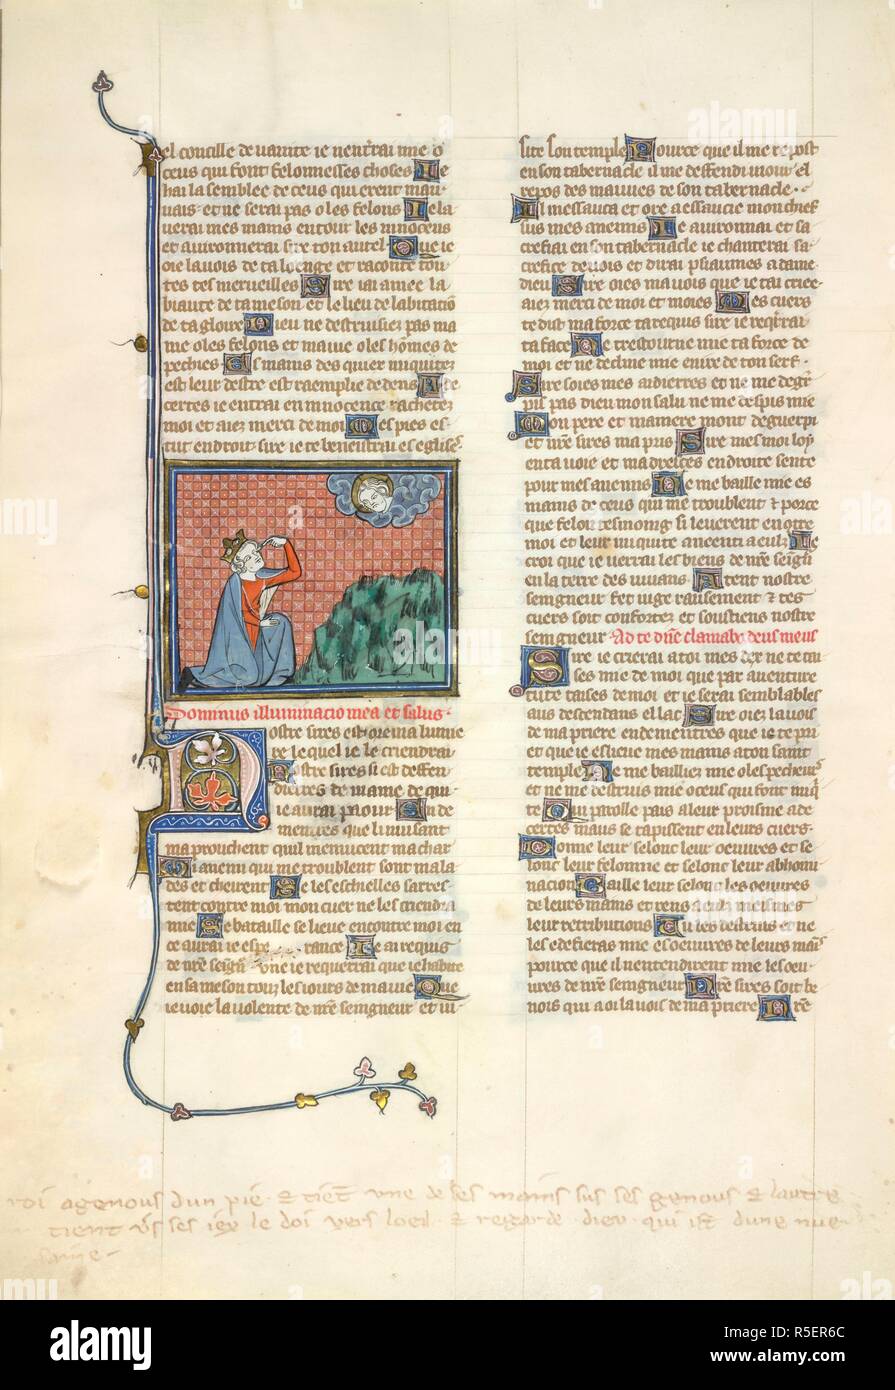 el concille de vanite ie nentrai mie o
ceus qui font felonnesses choses Ie
hai la semblee de ceus qui erent mau
vais et ne serai pas o les felons Ie la
verai mes mains entour les innocens
et avironnerai sire ton autel Que ie
oie la vois de ta loenge et raconte tou
tes tes merveilles Sire iai amee la
biaute de ta meson et le lieu de labitacion
de ta gloire Dieu ne destruisiez pas ma
me o les felons et ma vie o les homes de
pechies Es mains des quiex iniquitez
est leur destre est raemplie de dons
certes ie entrai en innocence rachetez
moi et aiez merci de moi Mes pies es
tut en droit sire ie te beneistrai es eglises
Dominus illuminacio mea et salus
Nostre sires est ma lumie
re lequel ie criendrai
Nostre sires si est deffen
dierres de ma vie de qui
ie aurai paour En de
mentres que li nuisant
maprouchent quil meniucent ma char
Mi anemi qui me troublent sont mala
des et cheirent Se les eschielles sarres
tent contre moi mon cuer ne les criendra
mie Se bataille se lieve encontre moi en
ce aurai ie esperance Ie ai requis
de nre seign une ie requerrai que ie habite
en sa meson touz les iours de ma vie Que
ie voie la volente de nre seigneur et vi
site son temple Pource que il me repost
en son tabernacle il me deffendi
repos des mauves de son tabernacle
Il messauca et ore a essaucie mon chief
sus mes anemis Ie avironnai et sa
crefiai en son tabernacle ie chanterai sa
crefice de vois et dirai psiaumes a dame
dieu Sire oies ma vois que ie tai criee
aiez merci de moi et moies Mes cuers
te dist ma face ta requis sire ie reqrrai
ta face Ne trestourne mie ta face de
moi et ne decline mie en ire de ton serf
Sire soies mes aidierres et ne me
pas dieu mon salu ne me despis mie
Mon pere et ma mere mont deguerpi
et nre sires ma pris Sire mes moi loy
en ta voie et madreices en droite sente
pour mes anemis Ne me baille mie es
mains de ceus qui me troublent et porce
que felon tesmoing si leverent en
moi et leur iniquite
croi que ie verrai les biens de nre seign
en la terre des vivans Atent nostre
seingneur fet vige et tes
cuers soit confortez et soustiens nostre
seingneur Ad te dne clamabo deus meus
Sire ie crierai a toi mes dex ne te tai
ses mie de moi que par aventure
tu te taises de moi et ie serai semblables
aus descendans el lac Sire oiez la vois
de ma priere endementres que ie te pri
et que ie eslieve mes mains a ton saint
temple Ne me bailliez mie o les pecheurs
et ne me destruis mie o ceus qui font iniqi
te Qui parolle pais a leur proisme a de
certes maus se tapissent en leurs cuers
Donne leur selonc leur oeuvres et se
lonc leur felonnie et selonc leur abhomi
nacion Baille leur selonc les oeuvres
de leurs mains et rens
leur retributions Tu les destruis et ne
les edefieras mie es oeuvres de leurs mains
pource que il nentendirent mie les oeu
vres de nre seingneur Nre sires soit be
nois qui a oi la vois de ma priere Nre
roi agenous dun pie et tient une de ses mains sus ses genous et lautre
tient vers ses iex le doi vers loeil et regarde dieu qui ist dune nue
alamy
R5ER6C
Image ID: R5ER6C
www.alamy.com